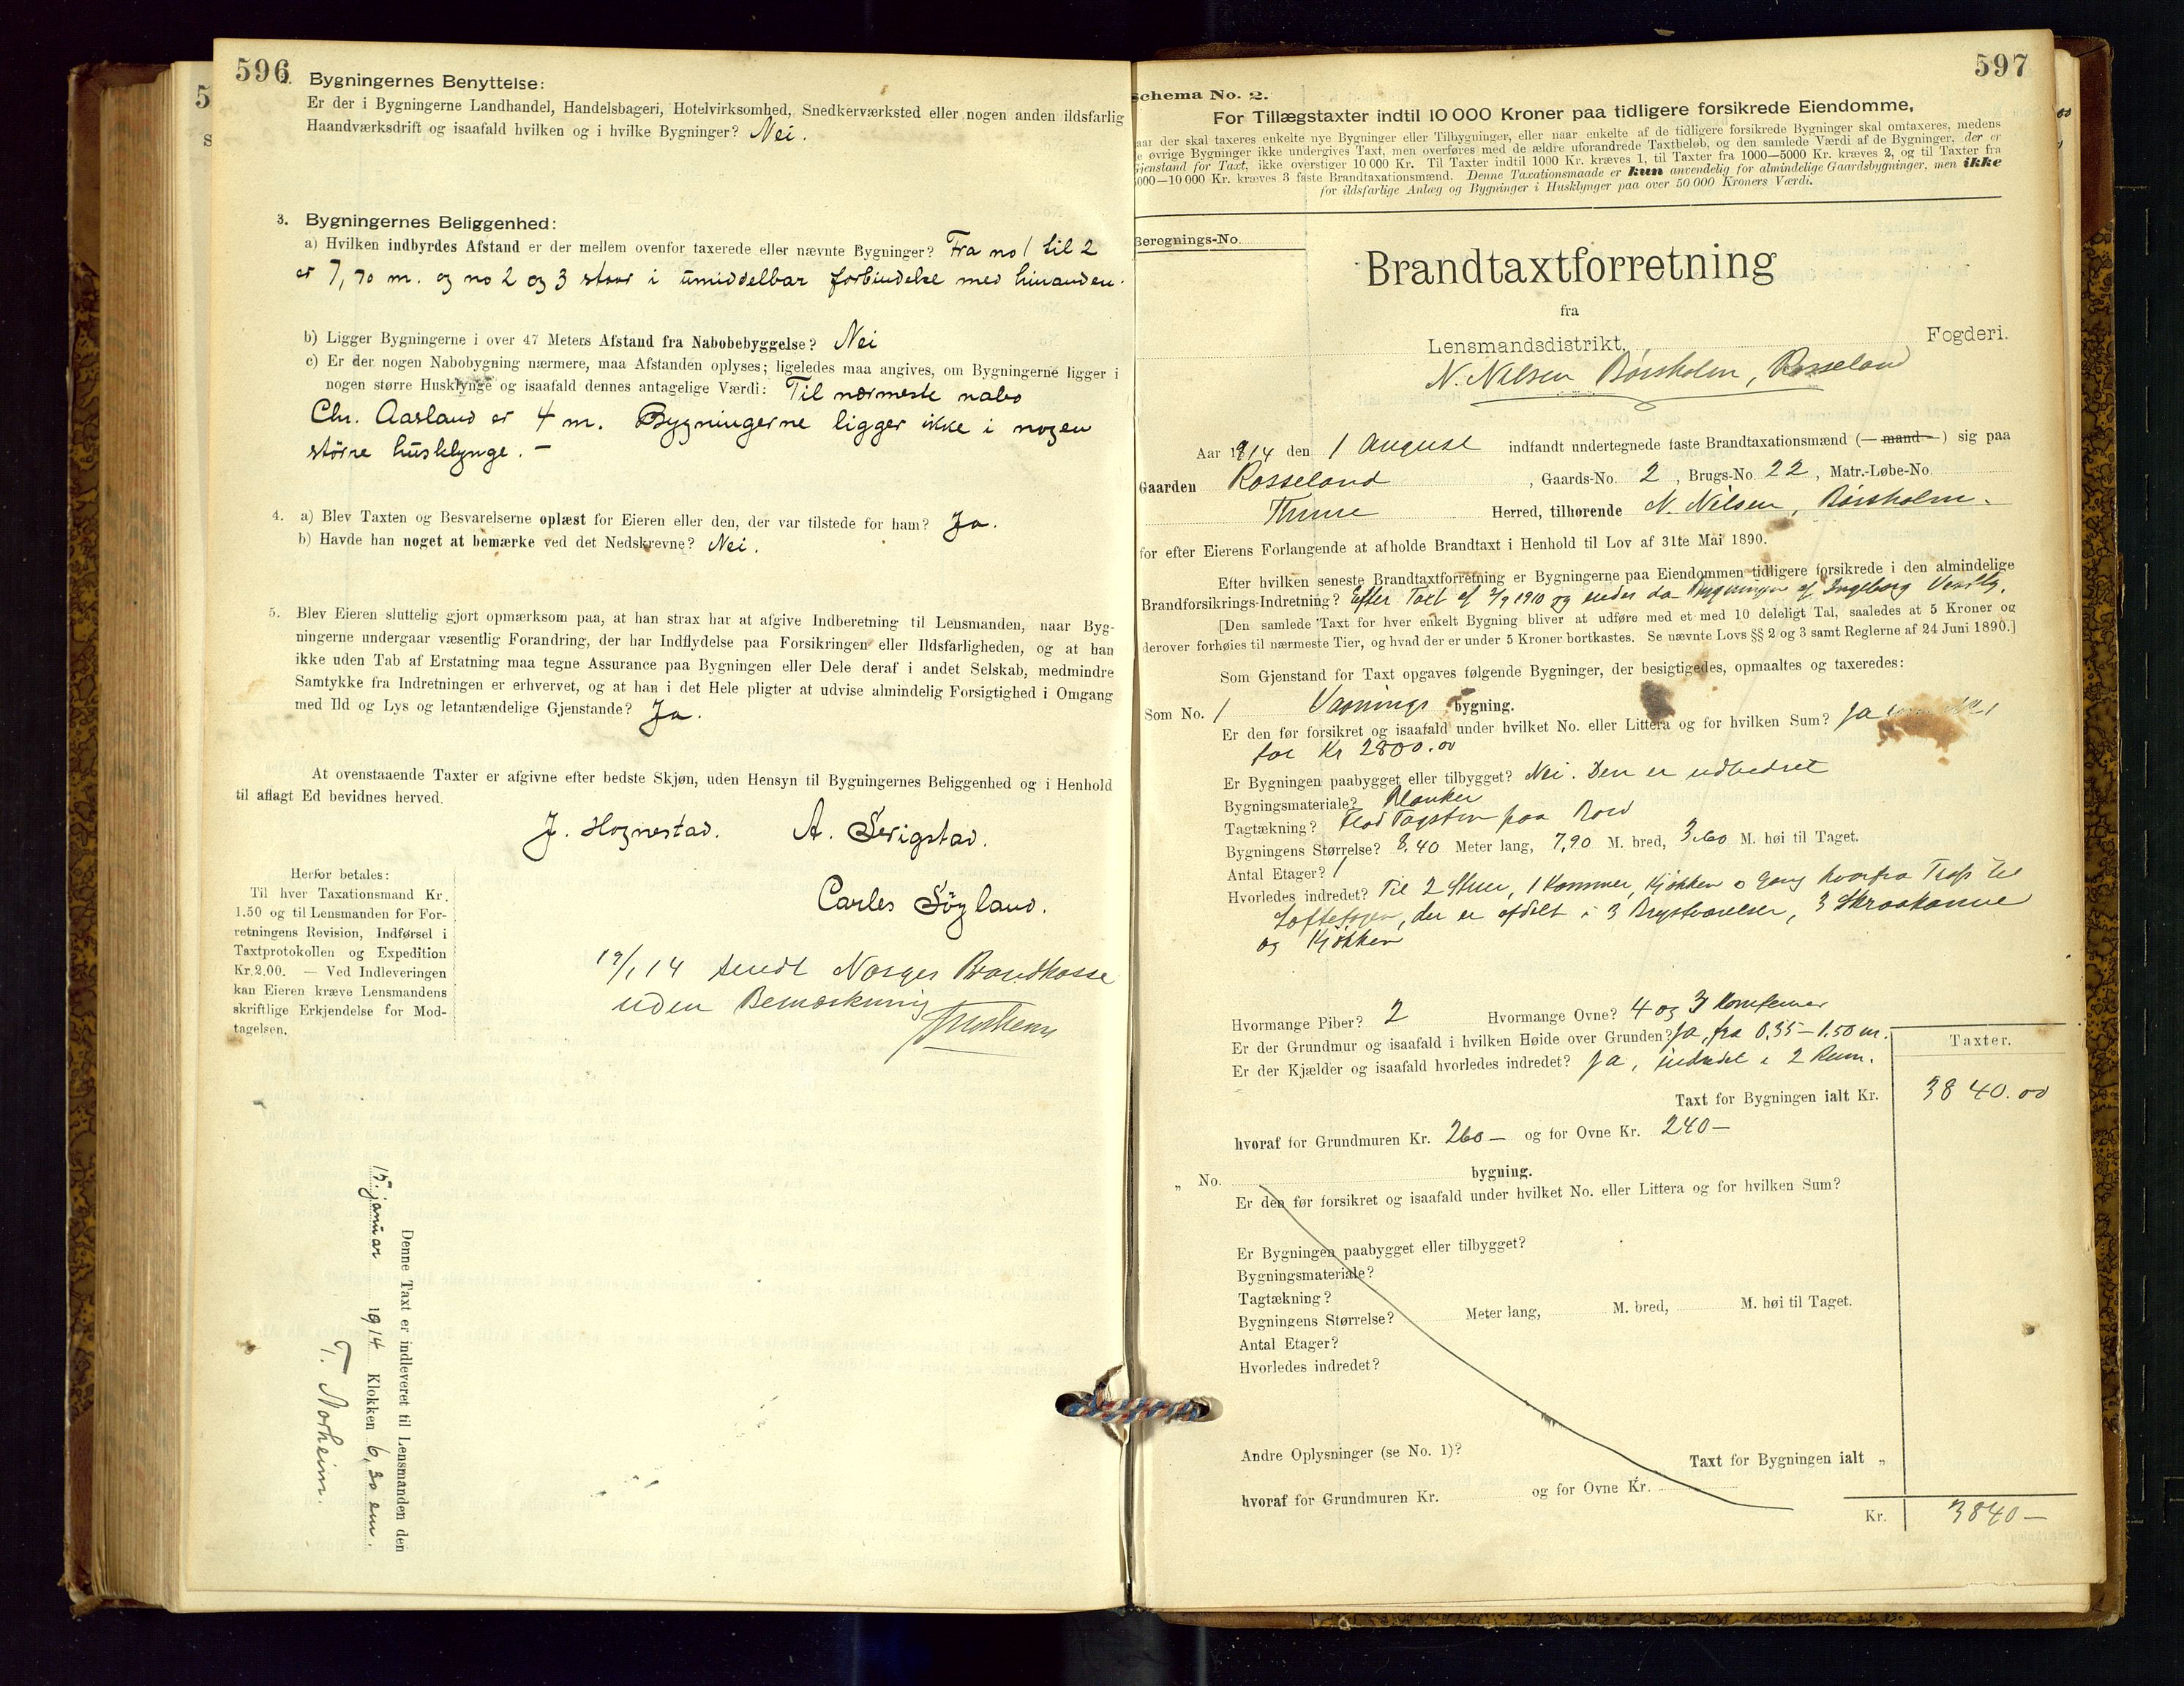 596
2. Bygningernes Benyttelse:
Er der i Bygningerne Landhandel, Handelsbageri, Hotelvirksomhed, Snedkerværksted eller nogen anden ildsfarlig
Haandværksdrift og isaafald hvilken og i hvilke Bygninger? Nei.
3. Bygningernes Beliggenhed:
a) Hvilken indbyrdes Afstand er der mellem ovenfor taxerede eller nævnte Bygninger? Fra no 1 til 2
er 7,70 m. og no 2 og 3 staar i umiddelbar forbindelse med hinanden.
b) Ligger Bygningerne i over 47 Meters Afstand fra Nabobebyggelse? Nei
c) Er der nogen Nabobygning nærmere, maa Afstanden oplyses; ligeledes maa angives, om Bygningerne ligger i
nogen større Husklynge og isaafald dennes antagelige Værdi: Til nærmeste nabo
Chr. Aarland er 4 m. Bygningerne ligger ikke i nogen
större husklynge. —
4. a) Blev Taxten og Besvarelserne oplæst for Eieren eller den, der var tilstede for ham? Ja.
b) Havde han noget at bemærke ved det Nedskrevne? Nei.
5. Blev Eieren sluttelig gjort opmærksom paa, at han strax har at afgive Indberetning til Lensmanden, naar Byg-
ningerne undergaar væsentlig Forandring, der har Indflydelse paa Forsikringen eller Ildsfarligheden, og at han
ikke uden Tab af Erstatning maa tegne Assurance paa Bygningen eller Dele deraf i andet Selskab, medmindre
Samtykke fra Indretningen er erhvervet, og at han i det Hele pligter at udvise almindelig Forsigtighed i Omgang
med Ild og Lys og letantændelige Gjenstande? Ja.
At ovenstaaende Taxter er afgivne efter bedste Skjøn, uden Hensyn til Bygningernes Beliggenhed og i Henhold
til aflagt Ed bevidnes herved.
J. Hognestad. A. Serigstad.
Carles Söyland.
Herfor betales:
Til hver Taxationsmand Kr.
1.50 og til Lensmanden for For-
retningens Revision, Indførsel i
Taxtprotokollen og Expedition
Kr. 2.00. — Ved Indleveringen
kan Eieren kræve Lensmandens
skriftlige Erkjendelse for Mod-
tagelsen.
19/1 14 sendt Norges Brandkasse
uden Bemærkning
Denne Taxt er indleveret til Lensmanden den
15. januar 1914 Klokken 6,30 em.
T. Norheim.
597
Schema No. 2.
For Tillægstaxter indtil 10 000 Kroner paa tidligere forsikrede Eiendomme,
aar der skal taxeres enkelte nye Bygninger eller Tilbygninger, eller naar enkelte af de tidligere forsikrede Bygninger skal omtaxeres, medens
e øvrige Bygninger ikke undergives Taxt, men overføres med de ældre uforandrede Taxtbeløb, og den samlede Værdi af de Bygninger, der er
Gjenstand for Taxt, ikke overstiger 10 000 Kr. Til Taxter indtil 1000 Kr. kræves 1, til Taxter fra 1000—5000 Kr. kræves 2, og til Taxter fra
5000—10 000 Kr. kræves 3 faste Brandtaxationsmænd. Denne Taxationsmaade er kun anvendelig for almindelige Gaardsbygninger, men ikke
for ildsfarlige Anlæg og Bygninger i Husklynger paa over 50 000 Kroners Værdi.
Beregnings-No.
Brandtaxtforretning
fra
Lensmandsdistrikt, Fogderi.
N. Nilsen Börsholm, Rosseland
Aar 1914 den 1 August indfandt undertegnede faste Brandtaxationsmænd (— mand —) sig paa
Gaarden Rosseland, Gaards-No. 2, Brugs-No. 22, Matr.-Løbe-No.
Thime Herred, tilhørende N. Nilsen, Börsholm.
for efter Eierens Forlangende at afholde Brandtaxt i Henhold til Lov af 31te Mai 1890.
Efter hvilken seneste Brandtaxtforretning er Bygningerne paa Eiendommen tidligere forsikrede i den almindelige
Brandforsikrings-Indretning? Efter Taxt af 2/9 1910 og eiedes da Bygningen af Ingeborg
[Den samlede Taxt for hver enkelt Bygning bliver at udføre med et med 10 deleligt Tal, saaledes at 5 Kroner og
derover forhøies til nærmeste Tier, og hvad der er under 5 Kroner bortkastes. Se nævnte Lovs §§ 2 og 3 samt Reglerne af 24 Juni 1890.]
Som Gjenstand for Taxt opgaves følgende Bygninger, der besigtigedes, opmaaltes og taxeredes:
Som No. 1 Vaanings bygning.
Er den før forsikret og isaafald under hvilket No. eller Littera og for hvilken Sum? Ja
for Kr 2800.00
Er Bygningen paabygget eller tilbygget? Nei. Den er udbedret
Bygningsmateriale? Planker
Tagtækning? Flad Tagsten paa Bord
Bygningens Størrelse? 8.40 Meter lang, 7,90 M. bred, 3.60 M. høi til Taget.
Antal Etager? 1
Hvorledes indredet? Til 2 Stuer, 1 Kammer, Kjøkken o Gang hvorfra Trap til
Loftetagen, der er afdelt i 3 Brystværelser, 3 Skraakamre
og Kjøkken
Hvormange Piber? 2 Hvormange Ovne? 4 og 3 Komfurer
Er der Grundmur og isaafald i hvilken Høide over Grunden? Ja, fra 0,35—1.50 m.
Er der Kjælder og isaafald hvorledes indredet? Ja, indredet i 2 Rum.
Taxter.
Taxt for Bygningen ialt Kr. 3840.00
hvoraf for Grundmuren Kr. 260— og for Ovne Kr. 240—
„ No. bygning.
Er den før forsikret og isaafald under hvilket No. eller Littera og for hvilken Sum?
Er Bygningen paabygget eller tilbygget?
Bygningsmateriale?
Tagtækning?
Bygningens Størrelse? Meter lang, M. bred, M. høi til Taget.
Antal Etager?
Hvorledes indredet?
Andre Oplysninger (se No. 1)?
Taxt for Bygningen ialt „
hvoraf for Grundmuren Kr. og for Ovne Kr.
Kr. 3840—